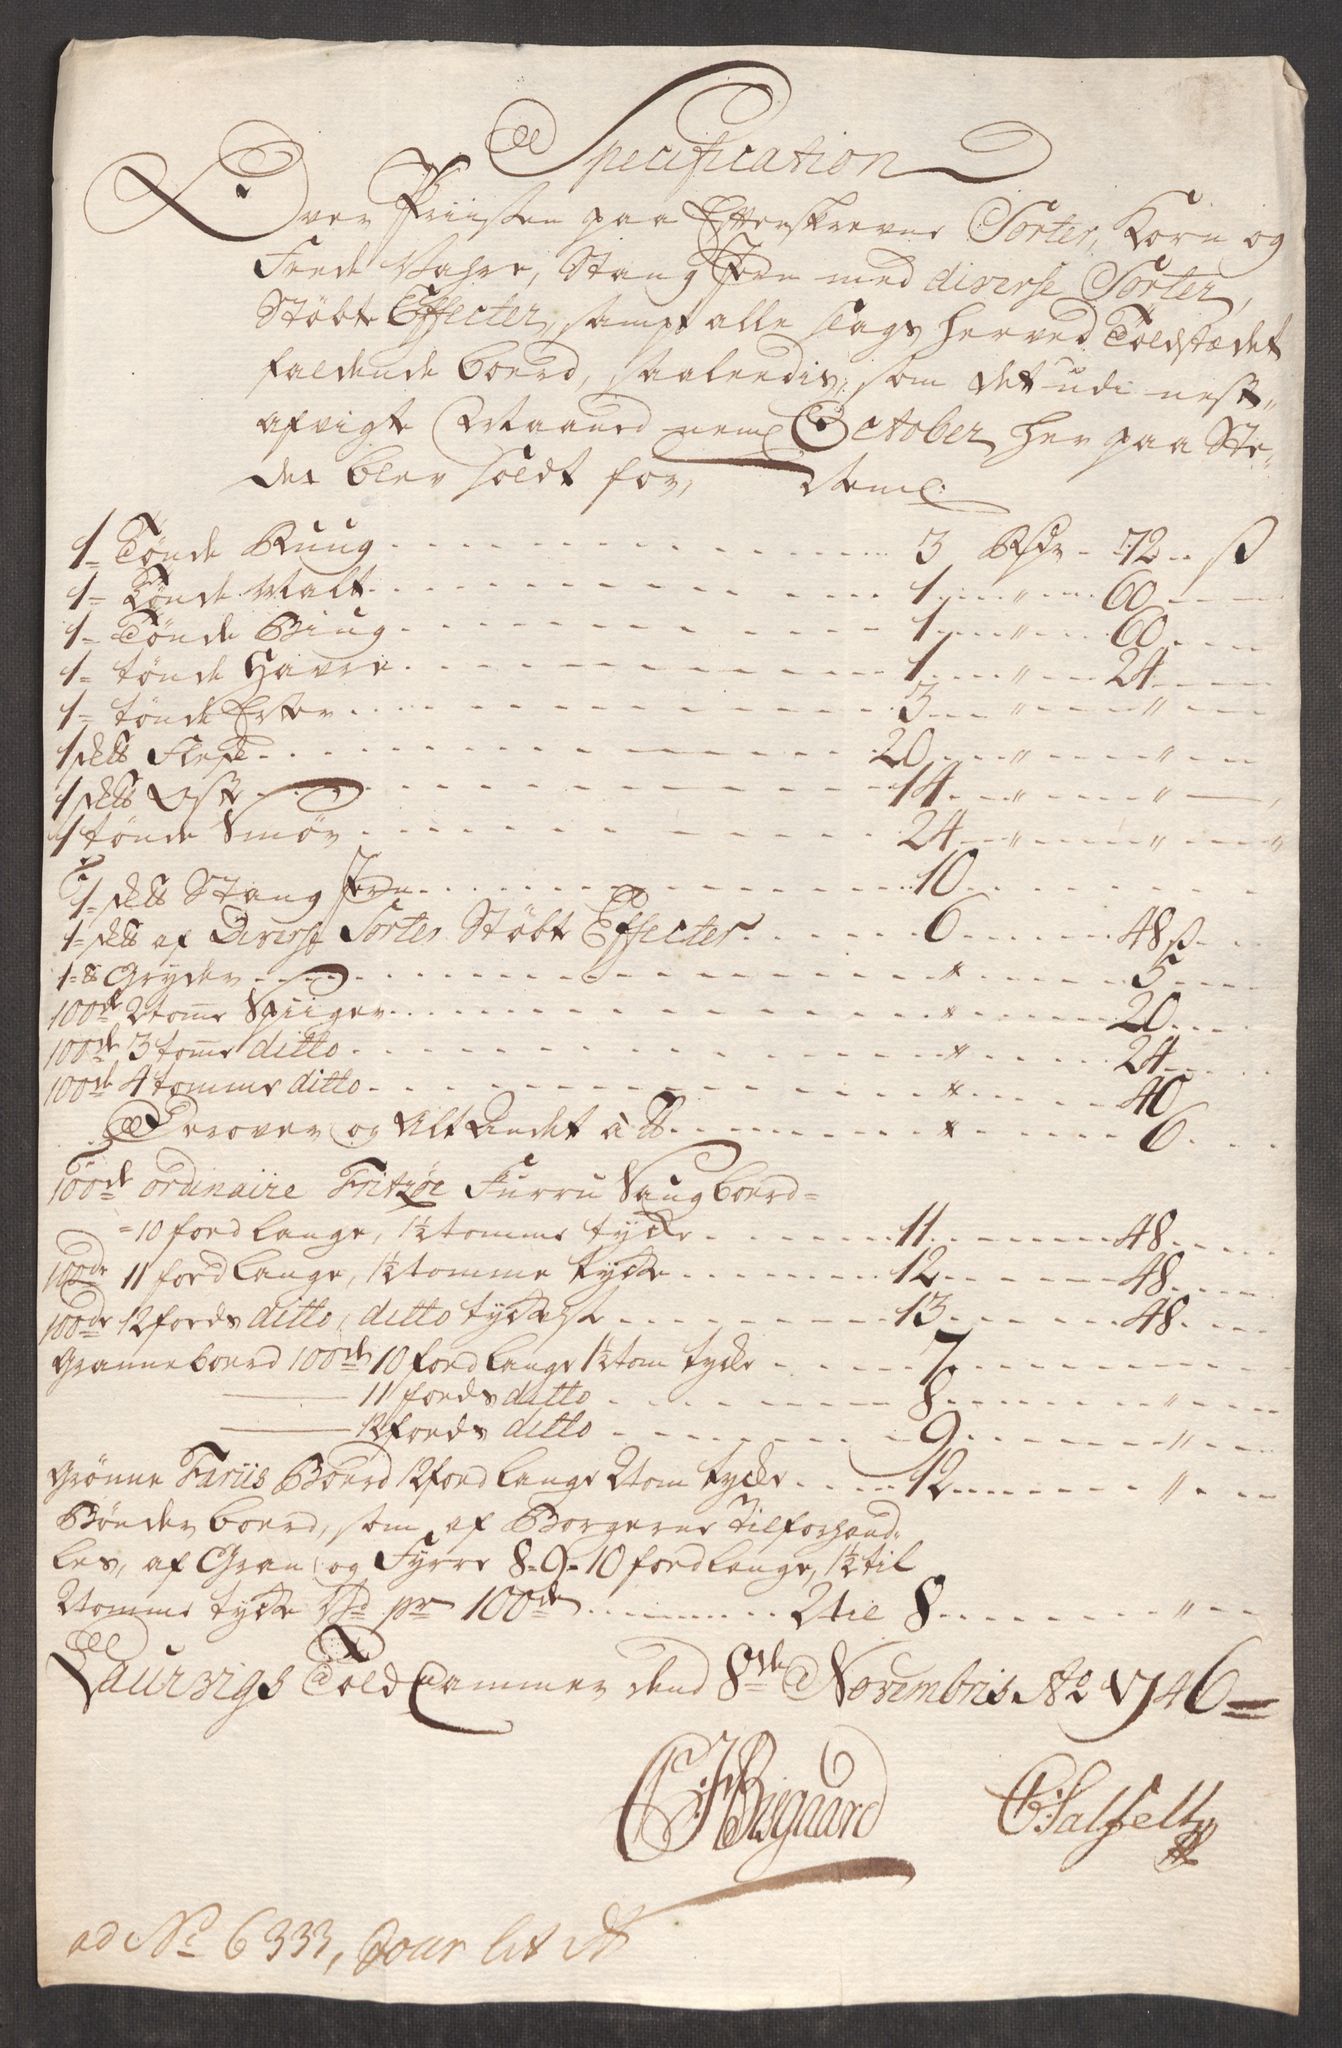 Specification
Over Priisen paa Efterskrevne Sorter, Korn og
Fede Vahre, Stang Jern med diverse Sorter,
Støbte Effecter, sampt alle slags herved Toldstædet
faldende boerd, saaleedis, som det udi nest-
afvigte Maaned neml October her paa Ste-
det blev soldt for, Neml
1 Tønde Ruug 3 Rdr 72 ß
1 Tønde Malt 1 " 60
1 Tønde Biug 1 " 60
1 tønde Havre 1 " 24
1 tønde Erter 3 " "
1 sk℔ Flesk 20 " "
1 sk℔ Ost 14 " "
1 tønde Smør 24 " " "
1 sk℔ Stang Jern 10
1 sk℔ af Diverse Sorter Støbte Effecter 6 48 ß
1 ℔ Gryder " 5
100de 2 tome Spiiger " 20
100de 3 tome ditto " 24
100de 4 tomme ditto " 40
Derover og Alt Andet à ℔ " 6
100de ordinaire Fritzøe Furru Saugboerd
10 foed lange, 1½ tomme tycke 11 48
100de 11 foed lange, 1½ tomme tycke 12 48
100de 12 foeds ditto, ditto tyckelse 13 48
Granneboerd 100de 10 foed lange 1½ tom tycke 7
11 foeds ditto 8 "
12 foeds ditto 9 "
Grønne Fariis Boerd 12 foed lange 2 tom tycke 12 "
Bønder boerd, som af Borgerne tilforhand-
les, af Gran og Fyrre 8-9-10 foed lange, 1½ til
2 tomme tycke pr 100de 2 til 8 "
Laurvigs Told Cammer dend 8de Novembris Ao 1746
Bisgaard C Salfelt
ad No 6333, Jour lit A